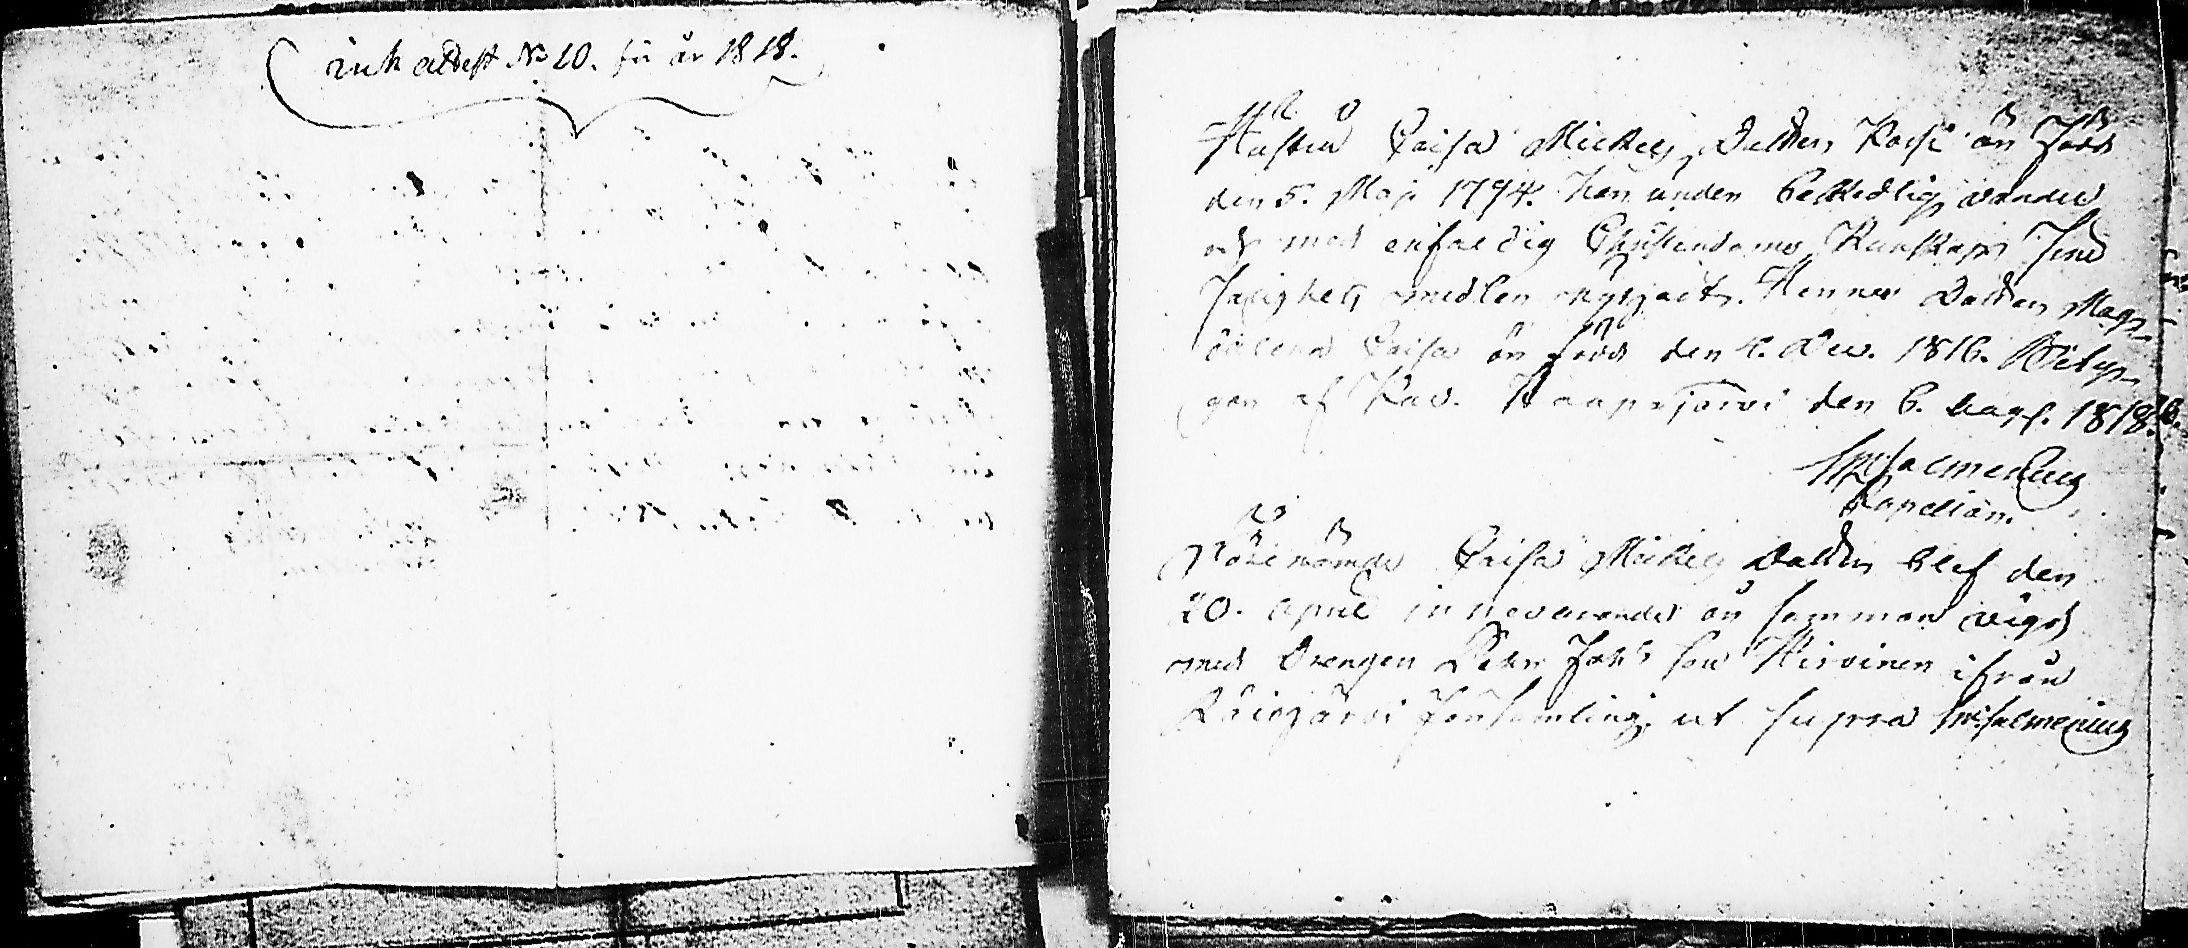 ink attest No 10. för år 1818.
Hustru Caisa Mickels Dotter Koski är född
den 5. Maji 1794. Har under beskedlig vandel
och med enfaldig Christendoms Kunskap sine
Salighets medlen nyttjat. Hennes Dotter Mag-
dalena Caisa är född den 4. Dec. 1816. Betyg-
gar af Kav. Haapajärvi den 6. 1818.
Salmenius
Kapellan.
Förenämde Caisa Mickels Dotter blef den
20. April innevarande år samman vigd
med Drengen Petter Joh's son Hirvinen ifrån
Försambling. ut supra Salmenius